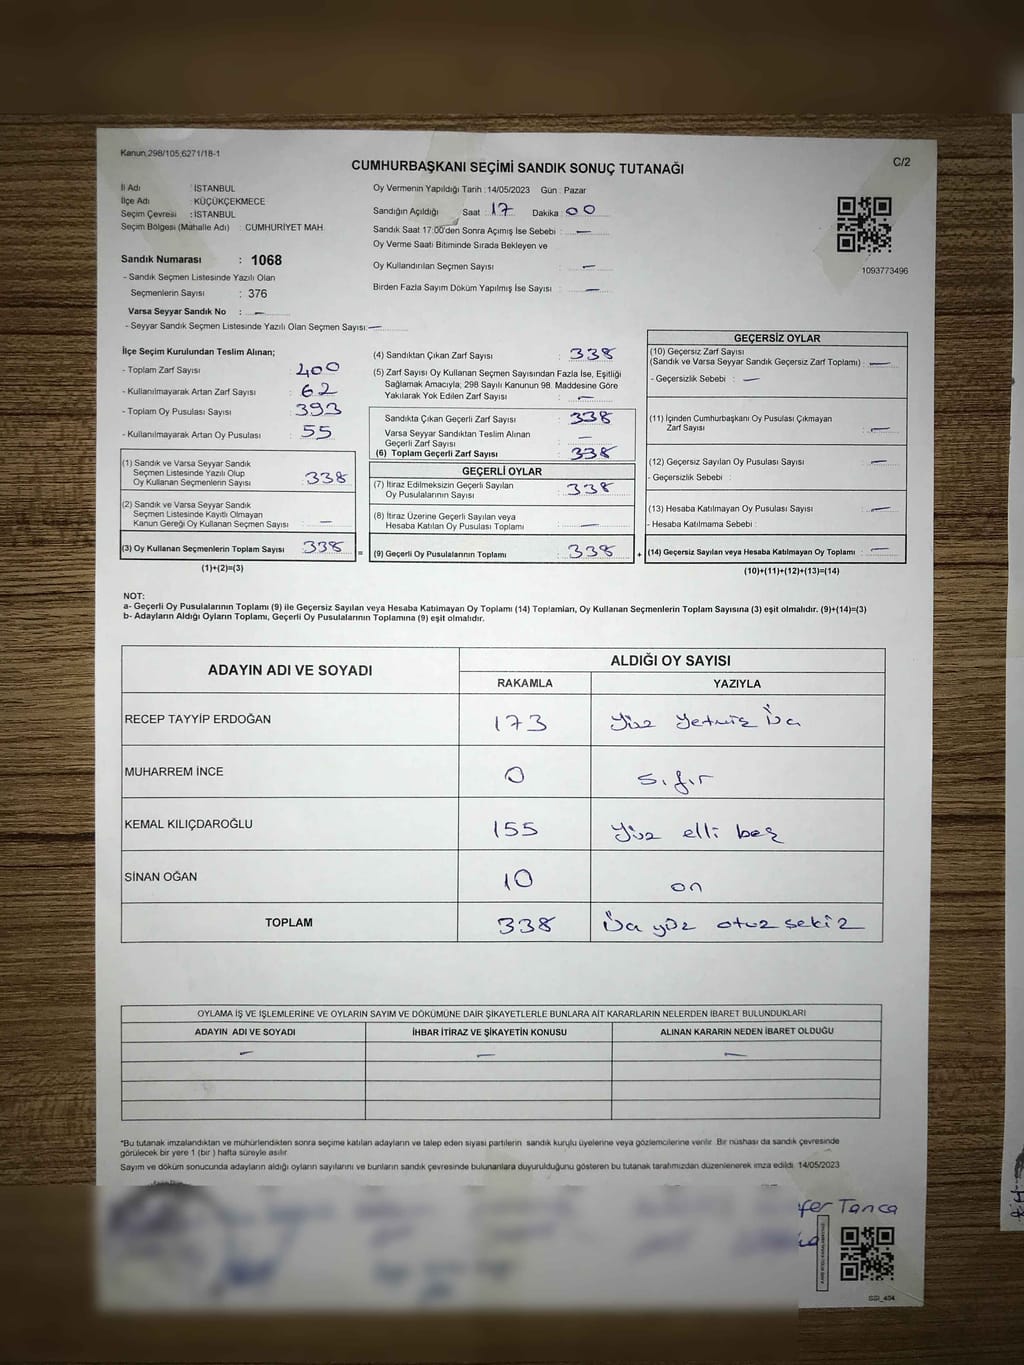 Kanun,298/105,6271/18-1
C/2
CUMHURBAŞKANI SEÇİMİ SANDIK SONUÇ TUTANAĞI
İl Adı : İSTANBUL
İlçe Adı : KÜÇÜKÇEKMECE
Seçim Çevresi : İSTANBUL
Seçim Bölgesi (Mahalle Adı) : CUMHURİYET MAH.
Sandık Numarası : 1068
- Sandık Seçmen Listesinde Yazılı Olan
Seçmenlerin Sayısı : 376
Varsa Seyyar Sandık No : —
- Seyyar Sandık Seçmen Listesinde Yazılı Olan Seçmen Sayısı: —
Oy Vermenin Yapıldığı Tarih : 14/05/2023 Gün : Pazar
Sandığın Açıldığı Saat : 17 Dakika : 00
Sandık Saat 17:00'den Sonra Açımış İse Sebebi : —
Oy Verme Saati Bitiminde Sırada Bekleyen ve
Oy Kullandırılan Seçmen Sayısı : —
Birden Fazla Sayım Döküm Yapılmış İse Sayısı : —
1093773496
İlçe Seçim Kurulundan Teslim Alınan;
- Toplam Zarf Sayısı : 400
- Kullanılmayarak Artan Zarf Sayısı : 62
- Toplam Oy Pusulası Sayısı : 393
- Kullanılmayarak Artan Oy Pusulası : 55
(1) Sandık ve Varsa Seyyar Sandık
Seçmen Listesinde Yazılı Olup
Oy Kullanan Seçmenlerin Sayısı : 338
(2) Sandık ve Varsa Seyyar Sandık
Seçmen Listesinde Kayıtlı Olmayan
Kanun Gereği Oy Kullanan Seçmen Sayısı : —
(3) Oy Kullanan Seçmenlerin Toplam Sayısı : 338
(1)+(2)=(3)
=
(4) Sandıktan Çıkan Zarf Sayısı : 338
(5) Zarf Sayısı Oy Kullanan Seçmen Sayısından Fazla İse, Eşitliği
Sağlamak Amacıyla; 298 Sayılı Kanunun 98. Maddesine Göre
Yakılarak Yok Edilen Zarf Sayısı : —
Sandıkta Çıkan Geçerli Zarf Sayısı : 338
Varsa Seyyar Sandıktan Teslim Alınan
Geçerli Zarf Sayısı : —
(6) Toplam Geçerli Zarf Sayısı : 338
GEÇERLİ OYLAR
(7) İtiraz Edilmeksizin Geçerli Sayılan
Oy Pusulalarının Sayısı : 338
(8) İtiraz Üzerine Geçerli Sayılan veya
Hesaba Katılan Oy Pusulası Toplamı : —
(9) Geçerli Oy Pusulalarının Toplamı : 338
+
GEÇERSİZ OYLAR
(10) Geçersiz Zarf Sayısı
(Sandık ve Varsa Seyyar Sandık Geçersiz Zarf Toplamı) : —
- Geçersizlik Sebebi : —
(11) İçinden Cumhurbaşkanı Oy Pusulası Çıkmayan
Zarf Sayısı : —
(12) Geçersiz Sayılan Oy Pusulası Sayısı : —
- Geçersizlik Sebebi :
(13) Hesaba Katılmayan Oy Pusulası Sayısı : —
- Hesaba Katılmama Sebebi :
(14) Geçersiz Sayılan veya Hesaba Katılmayan Oy Toplamı : —
(10)+(11)+(12)+(13)=(14)
NOT:
a- Geçerli Oy Pusulalarının Toplamı (9) ile Geçersiz Sayılan veya Hesaba Katılmayan Oy Toplamı (14) Toplamları, Oy Kullanan Seçmenlerin Toplam Sayısına (3) eşit olmalıdır. (9)+(14)=(3)
b- Adayların Aldığı Oyların Toplamı, Geçerli Oy Pusulalarının Toplamına (9) eşit olmalıdır.
ADAYIN ADI VE SOYADI
ALDIĞI OY SAYISI
RAKAMLA YAZIYLA
RECEP TAYYİP ERDOĞAN 173 Yüz Yetmiş Üç
MUHARREM İNCE 0 sıfır
KEMAL KILIÇDAROĞLU 155 Yüz elli beş
SİNAN OĞAN 10 on
TOPLAM 338 Üç yüz otuz sekiz
OYLAMA İŞ VE İŞLEMLERİNE VE OYLARIN SAYIM VE DÖKÜMÜNE DAİR ŞİKAYETLERLE BUNLARA AİT KARARLARIN NELERDEN İBARET BULUNDUKLARI
ADAYIN ADI VE SOYADI İHBAR İTİRAZ VE ŞİKAYETİN KONUSU ALINAN KARARIN NEDEN İBARET OLDUĞU
— — —
*Bu tutanak imzalandıktan ve mühürlendikten sonra seçime katılan adayların ve talep eden siyasi partilerin sandık kurulu üyelerine veya gözlemcilerine verilir. Bir nüshası da sandık çevresinde
görülecek bir yere 1 (bir) hafta süreyle asılır.
Sayım ve döküm sonucunda adayların aldığı oyların sayılarını ve bunların sandık çevresinde bulunanlara duyurulduğunu gösteren bu tutanak tarafımızdan düzenlenerek imza edildi. 14/05/2023
fer Tanca
SSI_404